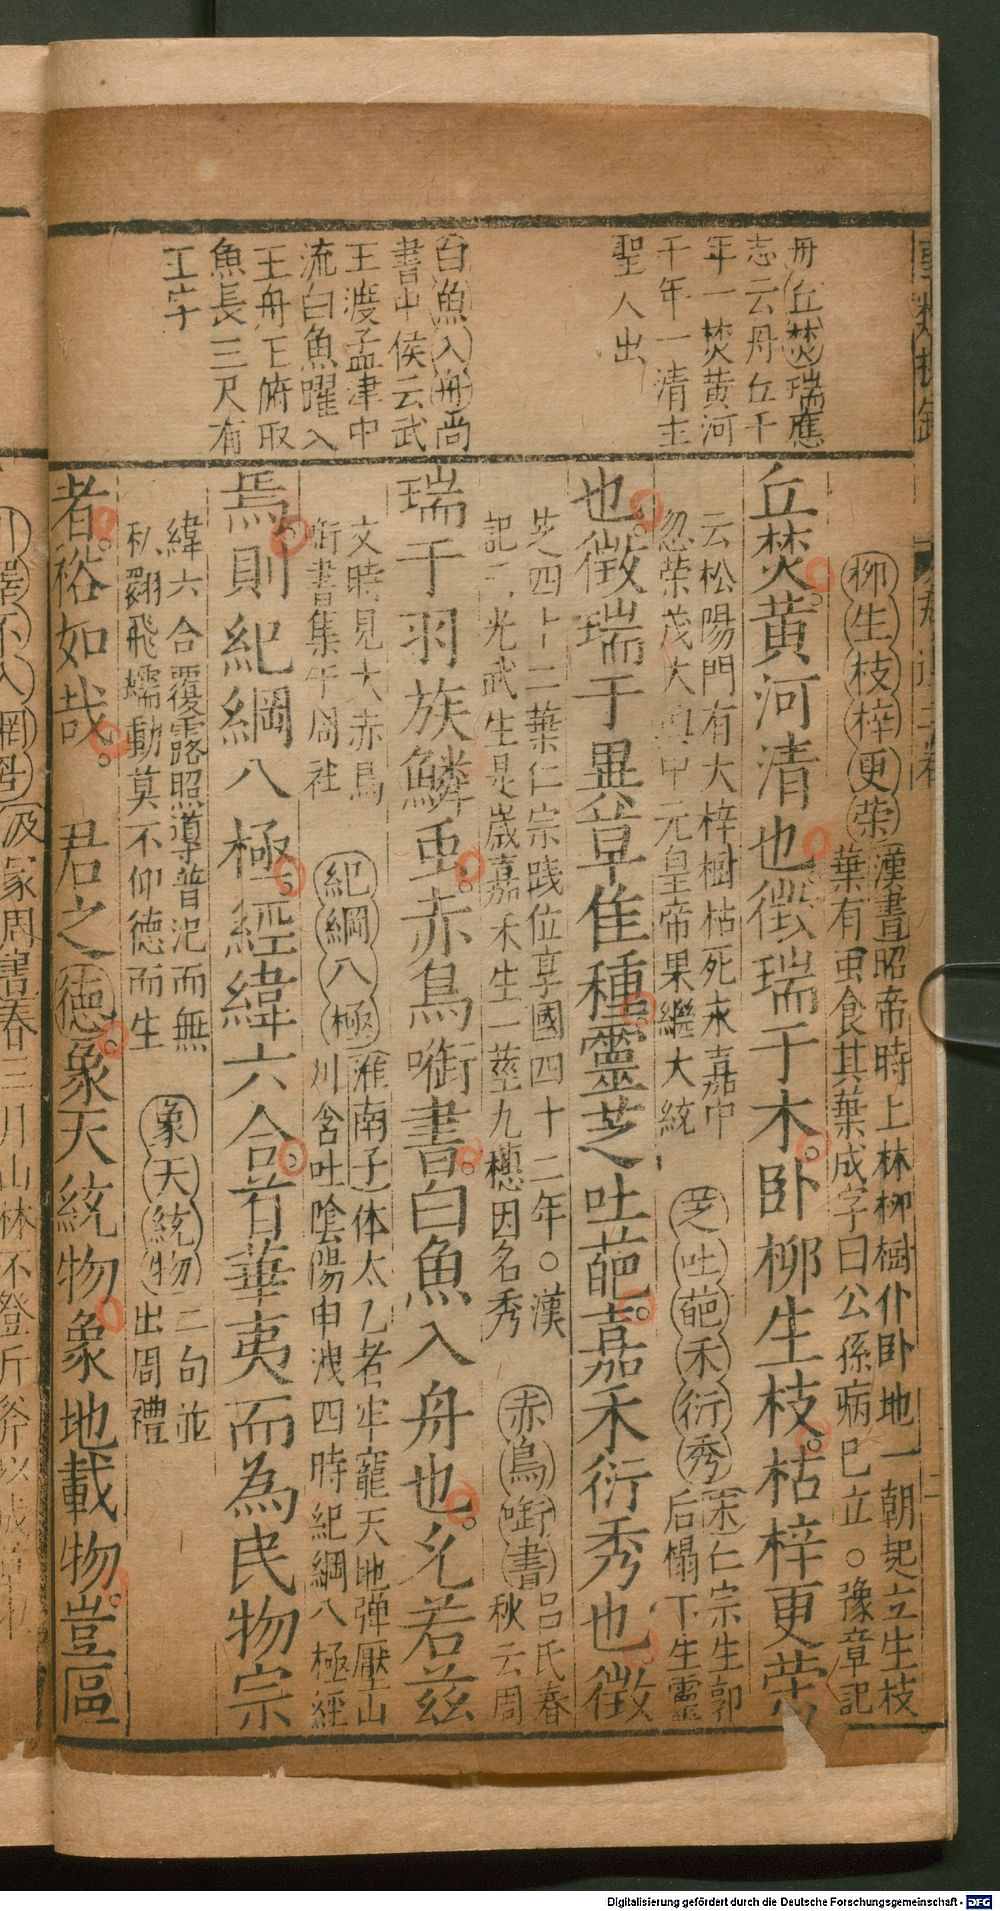 丹丘焚瑞應
志云丹丘千
年一焚黄河
千年一清主
聖人出
白魚入舟尚
書中侯云武
王渡孟津中
流白魚躍入
王舟王俯取
魚長三尺有
王字
丘焚黄河清也徴瑞于木卧柳生枝枯梓更榮
柳生枝梓更榮
漢書昭帝時上林柳樹仆卧地一朝起立生枝
葉有虫食其葉成字曰公孫病已立○豫章記
云松陽門有大梓樹枯死永嘉中
忽榮茂大興中元皇帝果繼大統
芝吐葩禾衍秀
宋仁宗生郭
后榻下生靈
也徴瑞于異草隹種靈芝吐葩嘉禾衍秀也徴
芝四十二葉仁宗踐位享國四十二年○漢
記云光武生是歲嘉禾生一莖九穗因名秀
赤烏啣書
吕氏春
秋云周
瑞于羽族鱗虫赤烏啣書白魚入舟也夫若兹
文時見大赤烏
銜書集于周社
紀綱八極
淮南子体太乙者牢寵天地弹壓山
川含吐陰陽申洩四時紀綱八極經
焉則紀綱八極經緯六合首華夷而為民物宗
緯六合覆露照導普汜而無
私翾飛蠕動莫不仰德而生
象天統物
二句並
出周禮
者裕如哉 君之德象天統物象地載物豈區
Digitalisierung gefördert durch die Deutsche Forschungsgemeinschaft - DFG